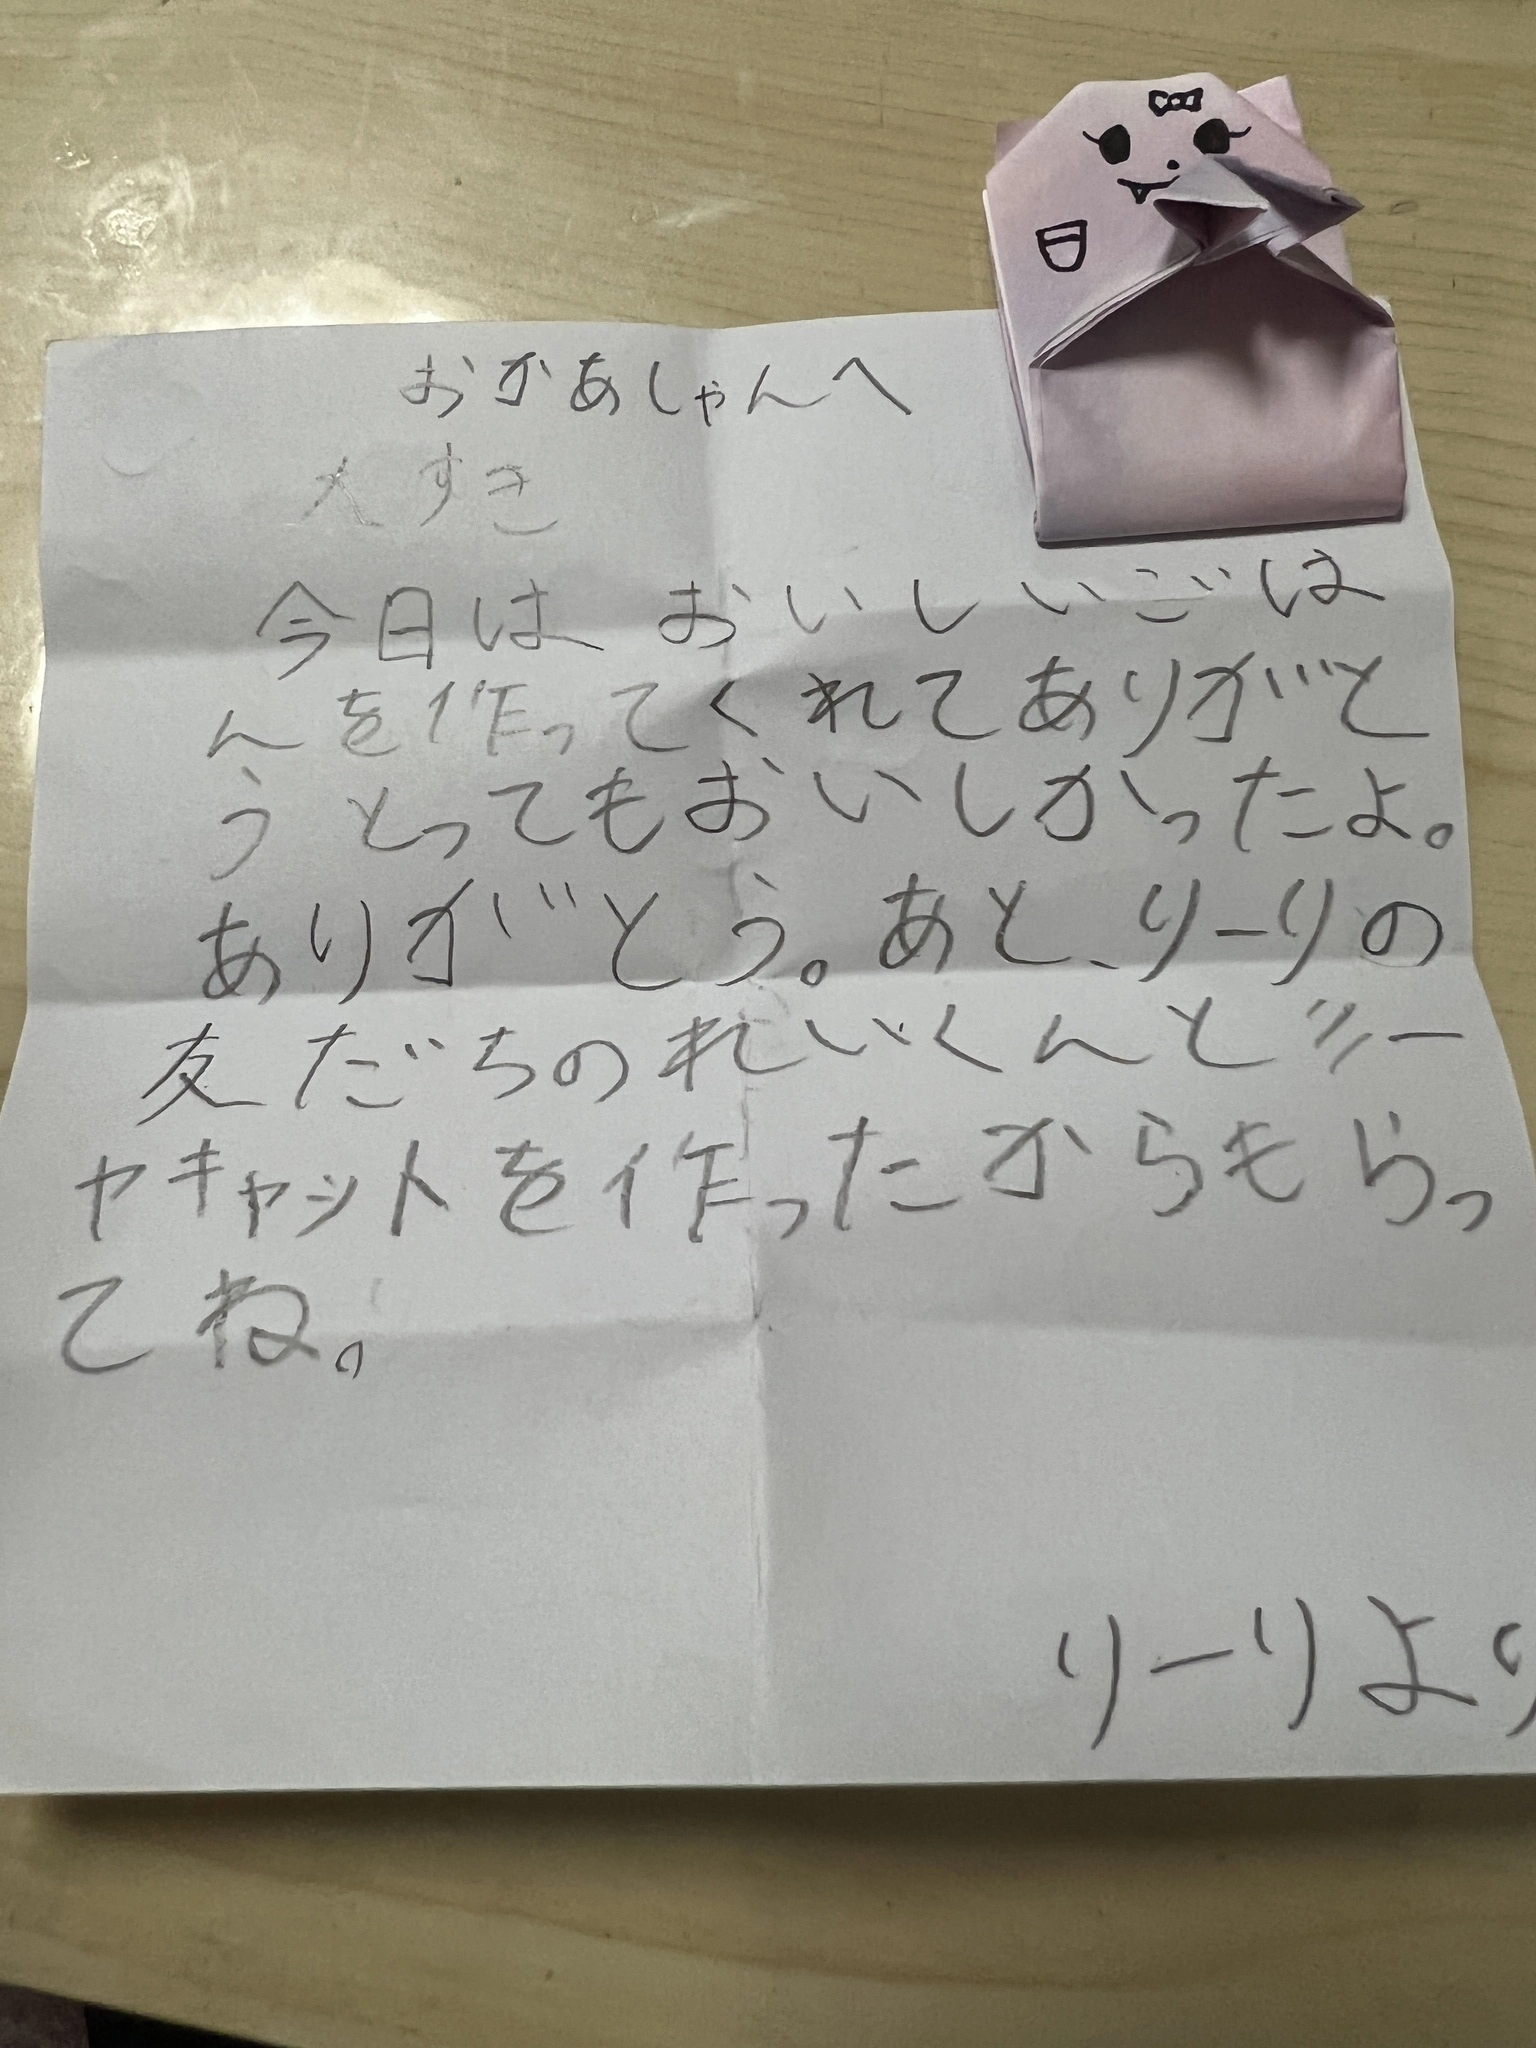 おかあしゃんへ
大すき
今日は おいしいごは
んを作ってくれてありがと
う とってもおいしかったよ。
ありがとう。あと、りーりの
友だちのれいくんとジー
ヤキャットを作ったからもらっ
てね。
りーりより